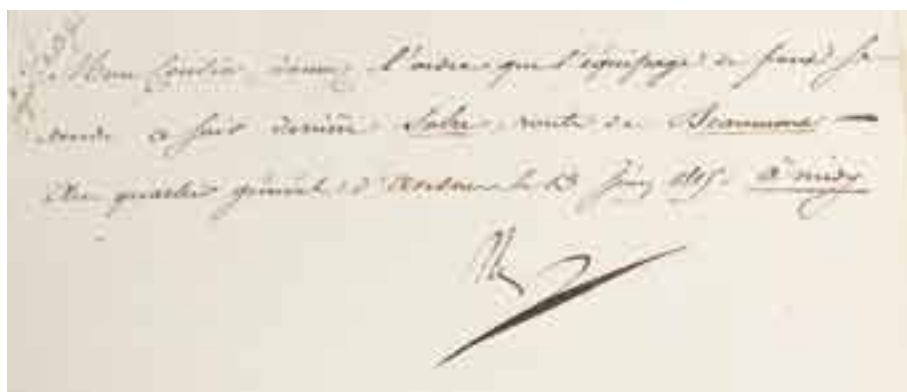 Mon Cousin, donnez l'ordre que l'équipage de pont se
rende ce soir derrière Solre, route de Beaumont —
Au quartier général d'Avesnes le Juin 1815. à midy